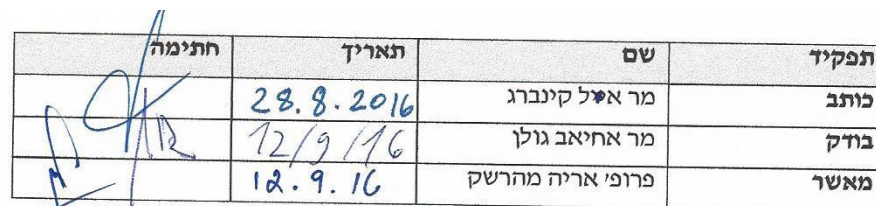 תפקיד שם תאריך חתימה
כותב מר קינברג 28.8.2016
בודק מר אחיאב גולן 12/9/16
מאשר פרופ' אריה מהרשק 12.9.16